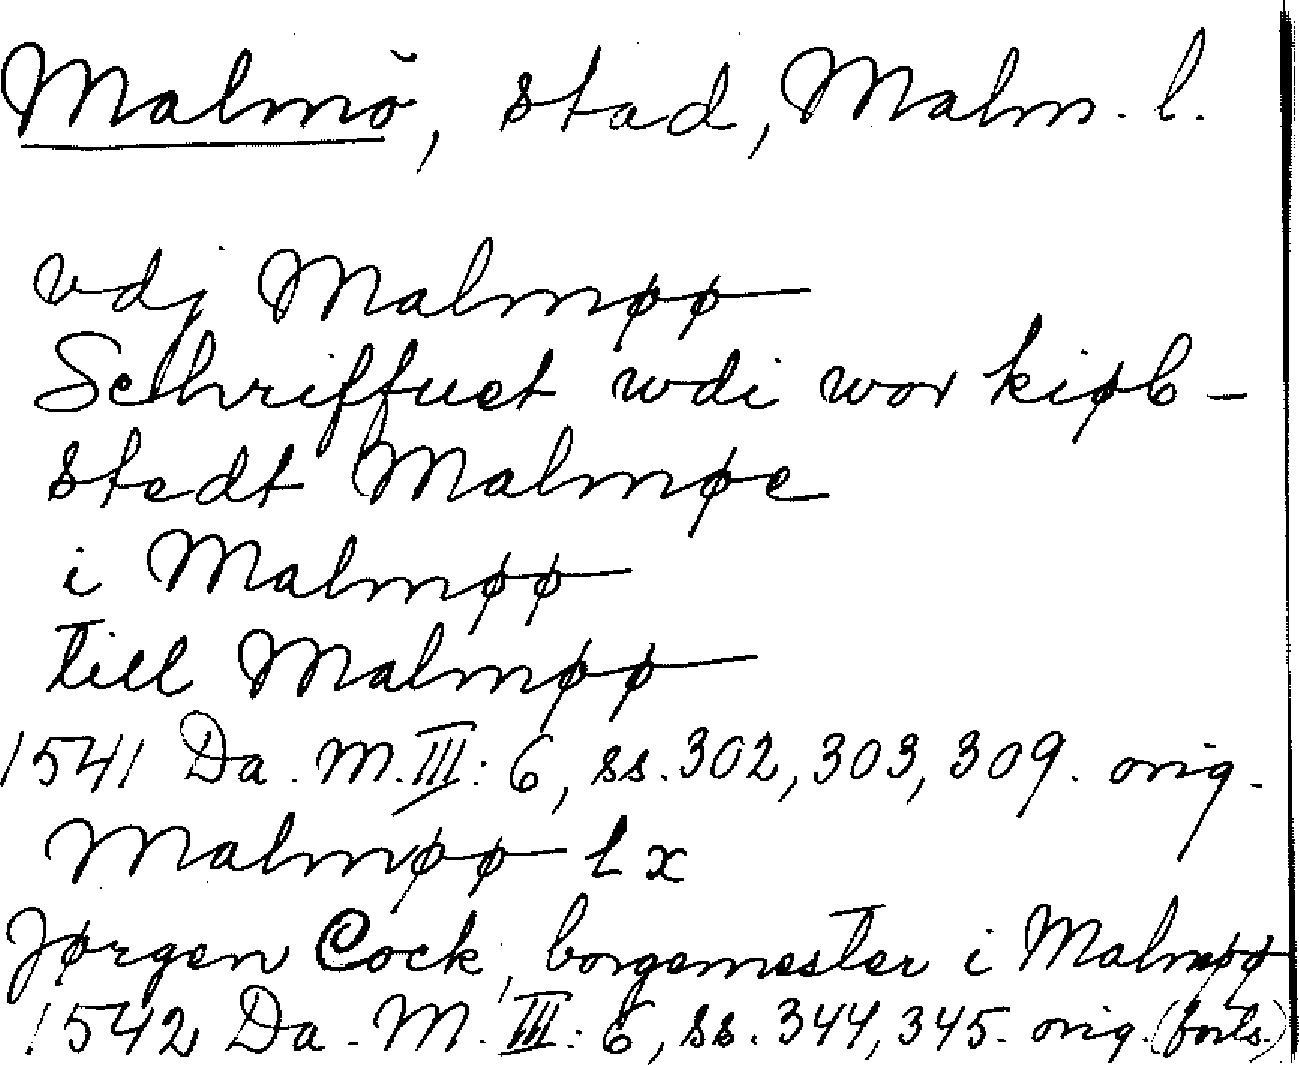 Malmö, stad, Malm. l.
vdj Malmøø
Schriffuet wdi wor kiøb-
stedt Malmøe
i Malmøø
till Malmøø
1541 Da. M. III: 6, ss. 302, 303, 309. orig.
Malmøø l x
Jørgen Cock, borgemester i Malmøø
1542 Da. M. III: 6, ss. 344, 345. orig. (forts.)